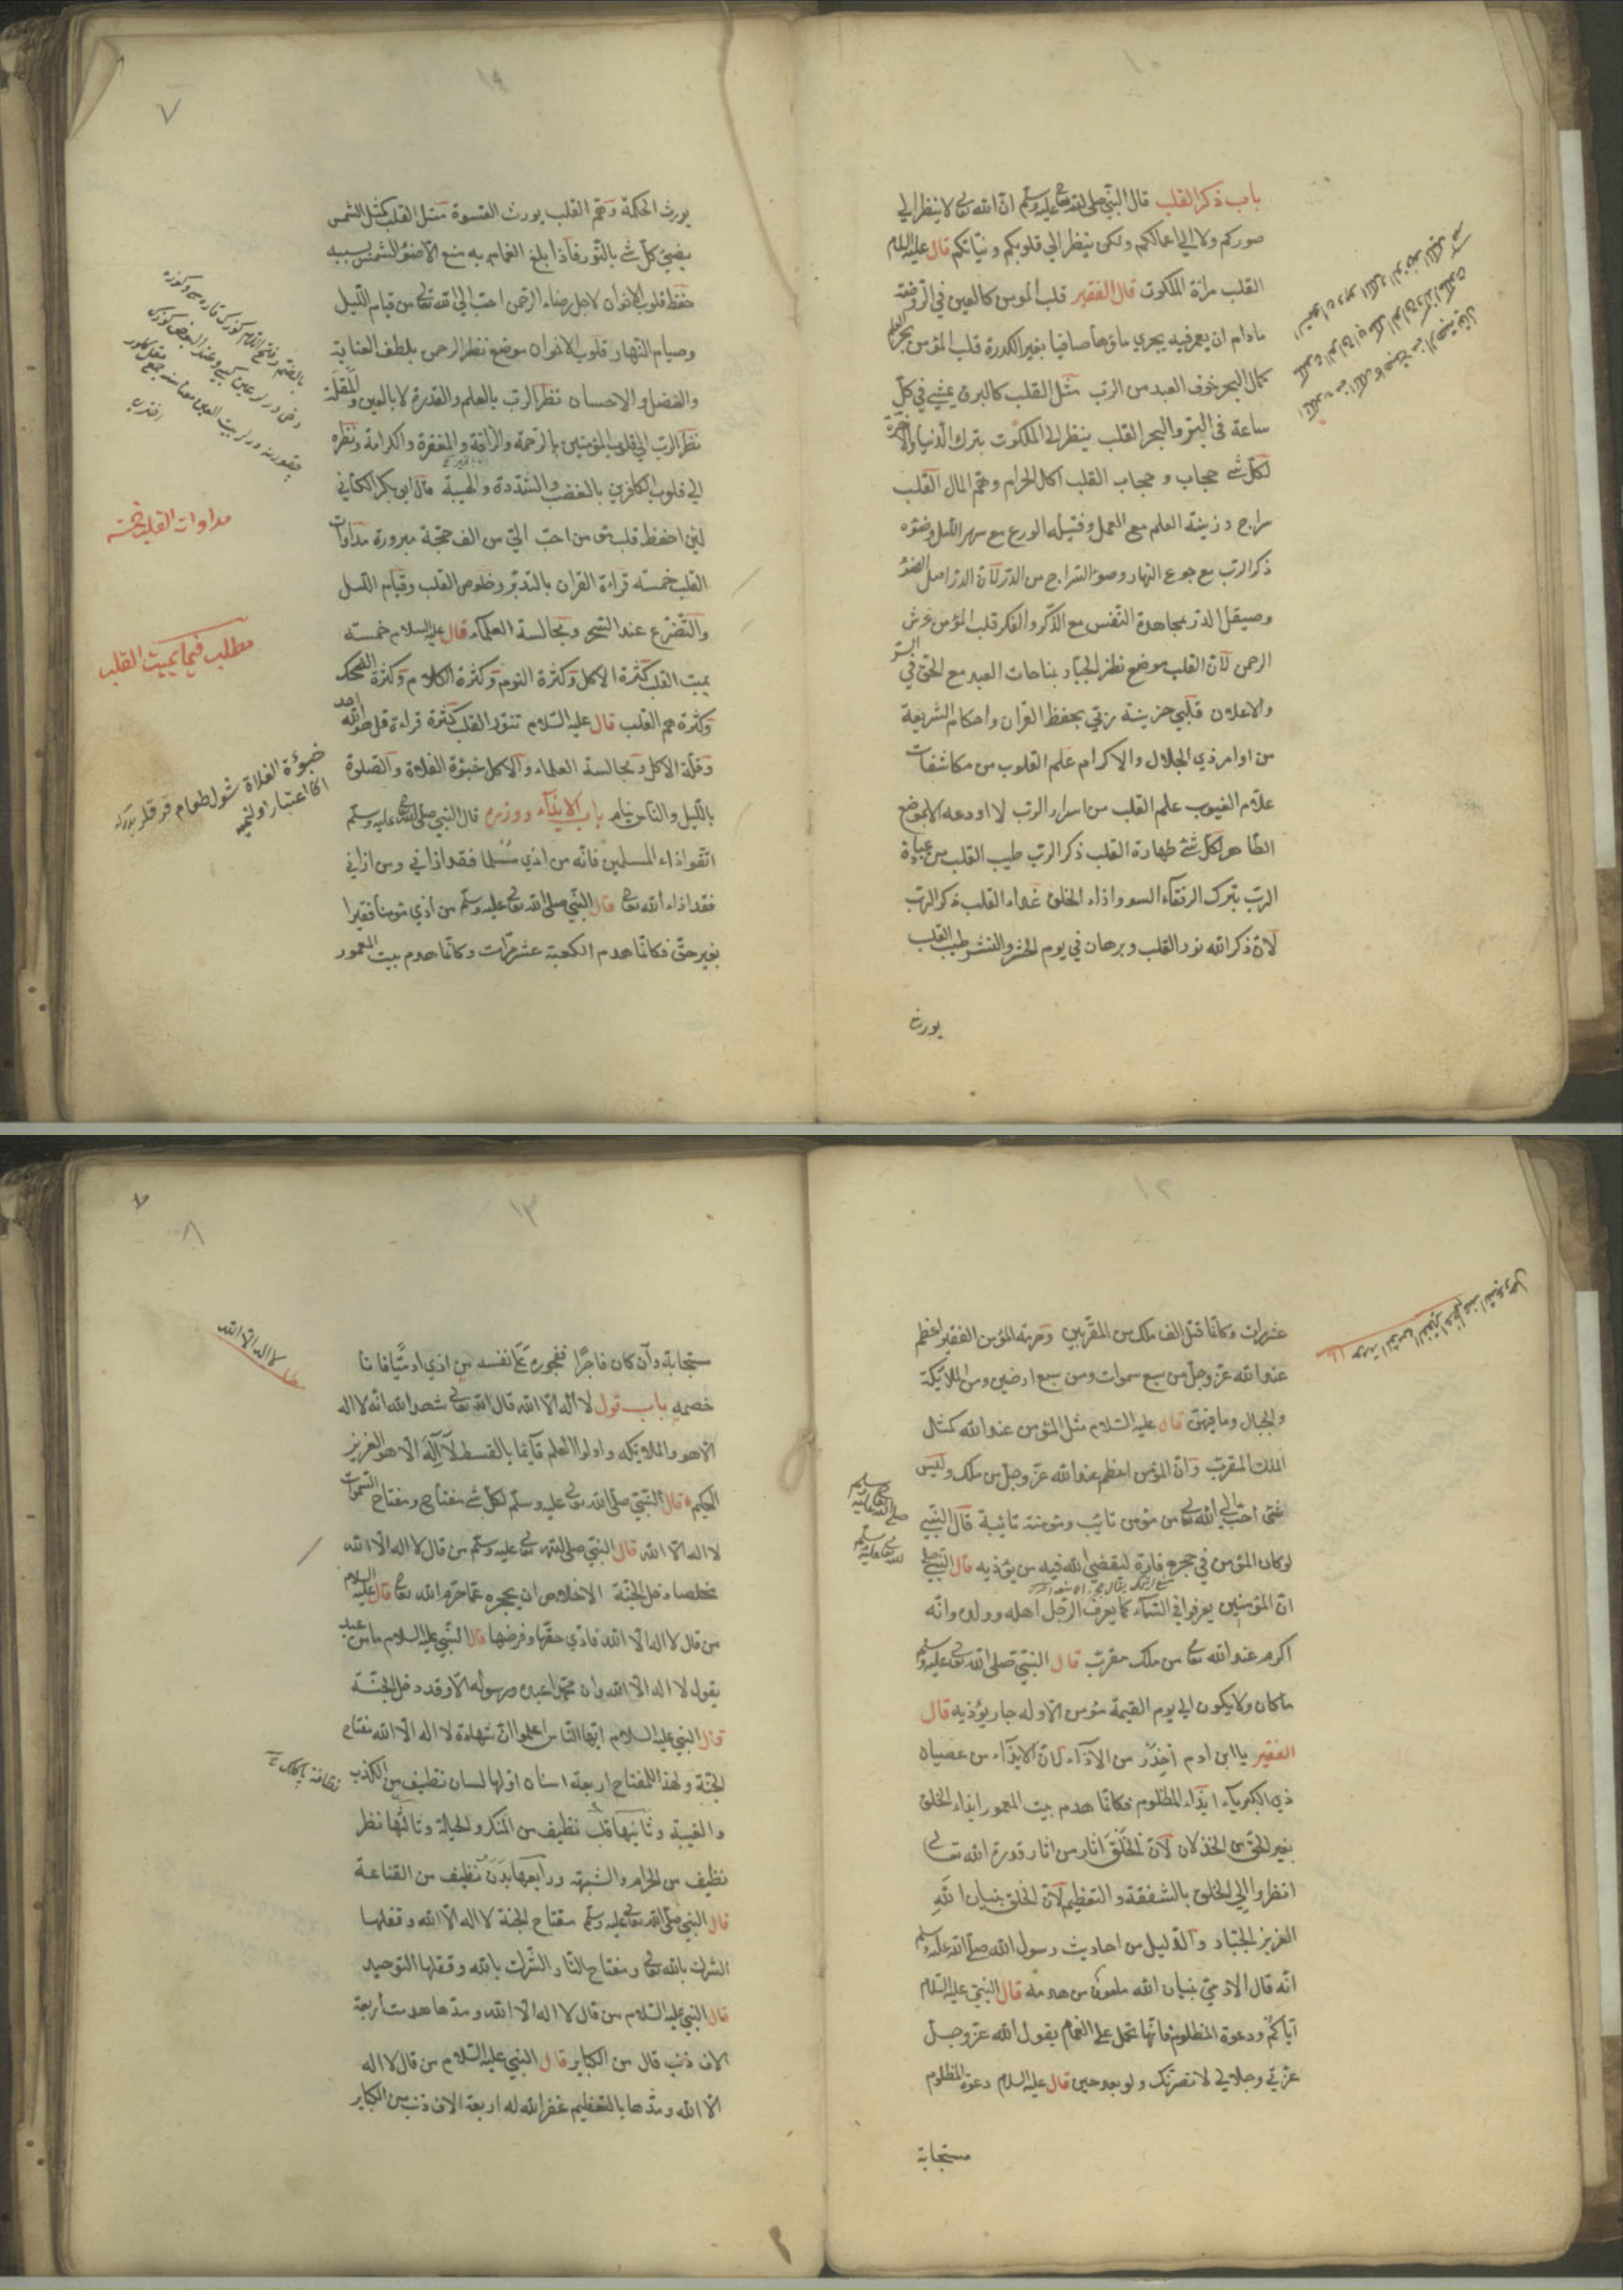 باب ذكر القلب قال النبي صلى الله تعالى عليه وسلم ان الله تعالى لا ينظر الي
صوركم ولا الي اعمالكم ولكن ينظر الي قلوبكم ونياتكم قال عليه السلام
القلب مرآة الملكوت قال الفقير قلب المؤمن كالعين في الروضة
مادام ان يعمر فيه يجري ماؤها صافيا بغير الكدرة قلب المؤمن بحر العلم
كمال البحر خوف العبد من الرب مثل القلب كالبرق يمشي في كل
ساعة في البر والبحر القلب ينظر الى الملكوت بترك الدنيا والآخرة
لكل شئ حجاب وحجاب القلب اكل الحرام وهم المال القلب
سراج وزينته العلم مع العمل وفتيله الورع مع سهر الليل وضوءه
ذكر الرب مع جوع النهار وضوء السراج من الدر لان الدر اصل الضوء
وصيقل الدر بمجاهدة النفس مع الذكر والفكر قلب المؤمن عرش
الرحمن لان القلب موضع نظر الجبار بمناجات العبد مع الحق في السر
والاعلان قلبي خزينة ربي بحفظ القران واحكام الشريعة
من اوامر ذي الجلال والاكرام علم القلوب من مكاشفات
علام الغيوب علم القلب من اسرار الرب لا اودعه الا بموضع
الطاهر لكل شئ طهارة القلب ذكر الرب طيب القلب من عبادة
الرب بترك الرفقاء السوء واذاء الخلق غداء القلب ذكر الرب
لان ذكر الله نور القلب وبرهان في يوم الحشر والنشر طيب القلب
يورث
٧
يورث الحكمة وهم القلب يورث القسوة مثل القلب كمثل الشمس
يضئ كل شئ بالنور فاذا بلغ الغمام به منع الاضوء الشمس بسببه
حفظ قلوب الاخوان لاجل رضاء الرحمن احب الي الله تعالى من قيام الليل
وصيام النهار قلوب الاخوان موضع نظر الرحمن بلطف العناية
والفضل والاحسان نظر الرب بالعلم والقدرة لا بالعين والمقلة
نظر الرب الي قلوب المؤمنين بالرحمة والرافة والمغفرة والكرامة ونظره
الي قلوب الكافرين بالغضب والشدة والهيبة قال ابو بكر الكتاني
لئن احفظ قلب مؤمن احب الي من الف حجة مبرورة مداوات
القلب خمسة قراءة القران بالتدبر وخلوص القلب وقيام الليل
والتضرع عند السحر ومجالسة العلماء قال عليه السلام خمسة
يميت القلب كثرة الاكل وكثرة النوم وكثرة الكلام وكثرة الضحك
وكثرة هم القلب قال عليه السلام تنور القلب كثرة قراءة قل هو الله احد
وقلة الاكل ومجالسة العلماء والاكل خبؤة الفلاة والصلوة
بالليل والناس نيام باب الايذاء ووزره قال النبي صلى الله تعالى عليه وسلم
اتقوا اذاء المسلمين فانه من اذي مسلما فقد اذاني ومن اذاني
فقد اذاء الله تعالى قال النبي صلى الله تعالى عليه وسلم من اذي مؤمنا فقيرا
بغير حق فكانما هدم الكعبة عشر مرات وكانما هدم بيت المعمور
مداوات القلب خمسة
مطلب فيما يميت القلب
١٢
عشر مرات وكانما قتل الف ملك من المقربين وحرمة المؤمن الفقير اعظم
عند الله عز وجل من سبع سموات ومن سبع ارضين ومن الملائكة
والجبال وما فيهن قال عليه السلام مثل المؤمن عند الله كمثال
الملك المقرب وان المؤمن اعظم عند الله عز وجل من ملك وليس
شئ احب الي الله تعالى من مؤمن تائب ومؤمنة تائبة قال النبي
لو كان المؤمن في حجره فارة لقضي الله فيه من يؤذيه قال النبي
ان المؤمنين يعرفوا في السماء كما يعرف الرجل اهله وولده وانه
اكرم عند الله تعالى من ملك مقرب قال النبي صلى الله تعالى عليه وسلم
ما كان ولا يكون الي يوم القيمة مؤمن الا وله جار يؤذيه قال
الفقير يا ابن ادم احذر من الاذاء لان الايذاء من عصيان
ذي الكبرياء ايذاء المظلوم فكانما هدم بيت المعمور ايذاء الخلق
بغير الحق من الخذلان لان الخلق اثار من اثار قدرة الله تعالى
انظروا الي الخلق بالشفقة والتعظيم لان الخلق بنيان الله
العزيز الجبار والدليل من احاديث رسول الله صلى الله عليه وسلم
انه قال الادمي بنيان الله ملعون من هدمه قال النبي عليه السلام
اياكم ودعوة المظلوم فانها تحمل على الغمام يقول الله عز وجل
عزتي وجلالي لانصرنك ولو بعد حين قال عليه السلام دعوة المظلوم
مستجابة
١٣
٨
مستجابة وان كان فاجرا ففجوره على نفسه من اذي ادميا فانا
خصمه باب قول لا اله الا الله قال الله تعالى شهد الله انه لا اله
الا هو والملائكة واولوا العلم قائما بالقسط لا اله الا هو العزيز
الحكيم قال النبي صلى الله تعالى عليه وسلم لكل شئ مفتاح ومفتاح السموات
لا اله الا الله قال النبي صلى الله تعالى عليه وسلم من قال لا اله الا الله
مخلصا دخل الجنة الاخلاص ان يحجره عما حرم الله تعالى قال عليه السلام
من قال لا اله الا الله فادي حقها وفرضها قال النبي عليه السلام ما من عبد
يقول لا اله الا الله وان محمدا عبده ورسوله الا وقد دخل الجنة
قال النبي عليه السلام ايها الناس اعلموا ان شهادة لا اله الا الله مفتاح
الجنة ولهذا المفتاح اربعة اسنان اولها لسان نظيف من الكذب
والغيبة وثانيها قلب نظيف من المكر والحيلة وثالثها نظر
نظيف من الحرام والشبهة ورابعها بدن نظيف من القناعة
قال النبي صلى الله تعالى عليه وسلم مفتاح الجنة لا اله الا الله وقفلها
الشرك بالله تعالى ومفتاح النار الشرك بالله وقفلها التوحيد
قال النبي عليه السلام من قال لا اله الا الله ومدها هدمت اربعة
الاف ذنب قال من الكبائر قال النبي عليه السلام من قال لا اله
الا الله ومدها بالتعظيم غفر الله له اربعة الاف ذنب من الكبائر
لا اله الا الله